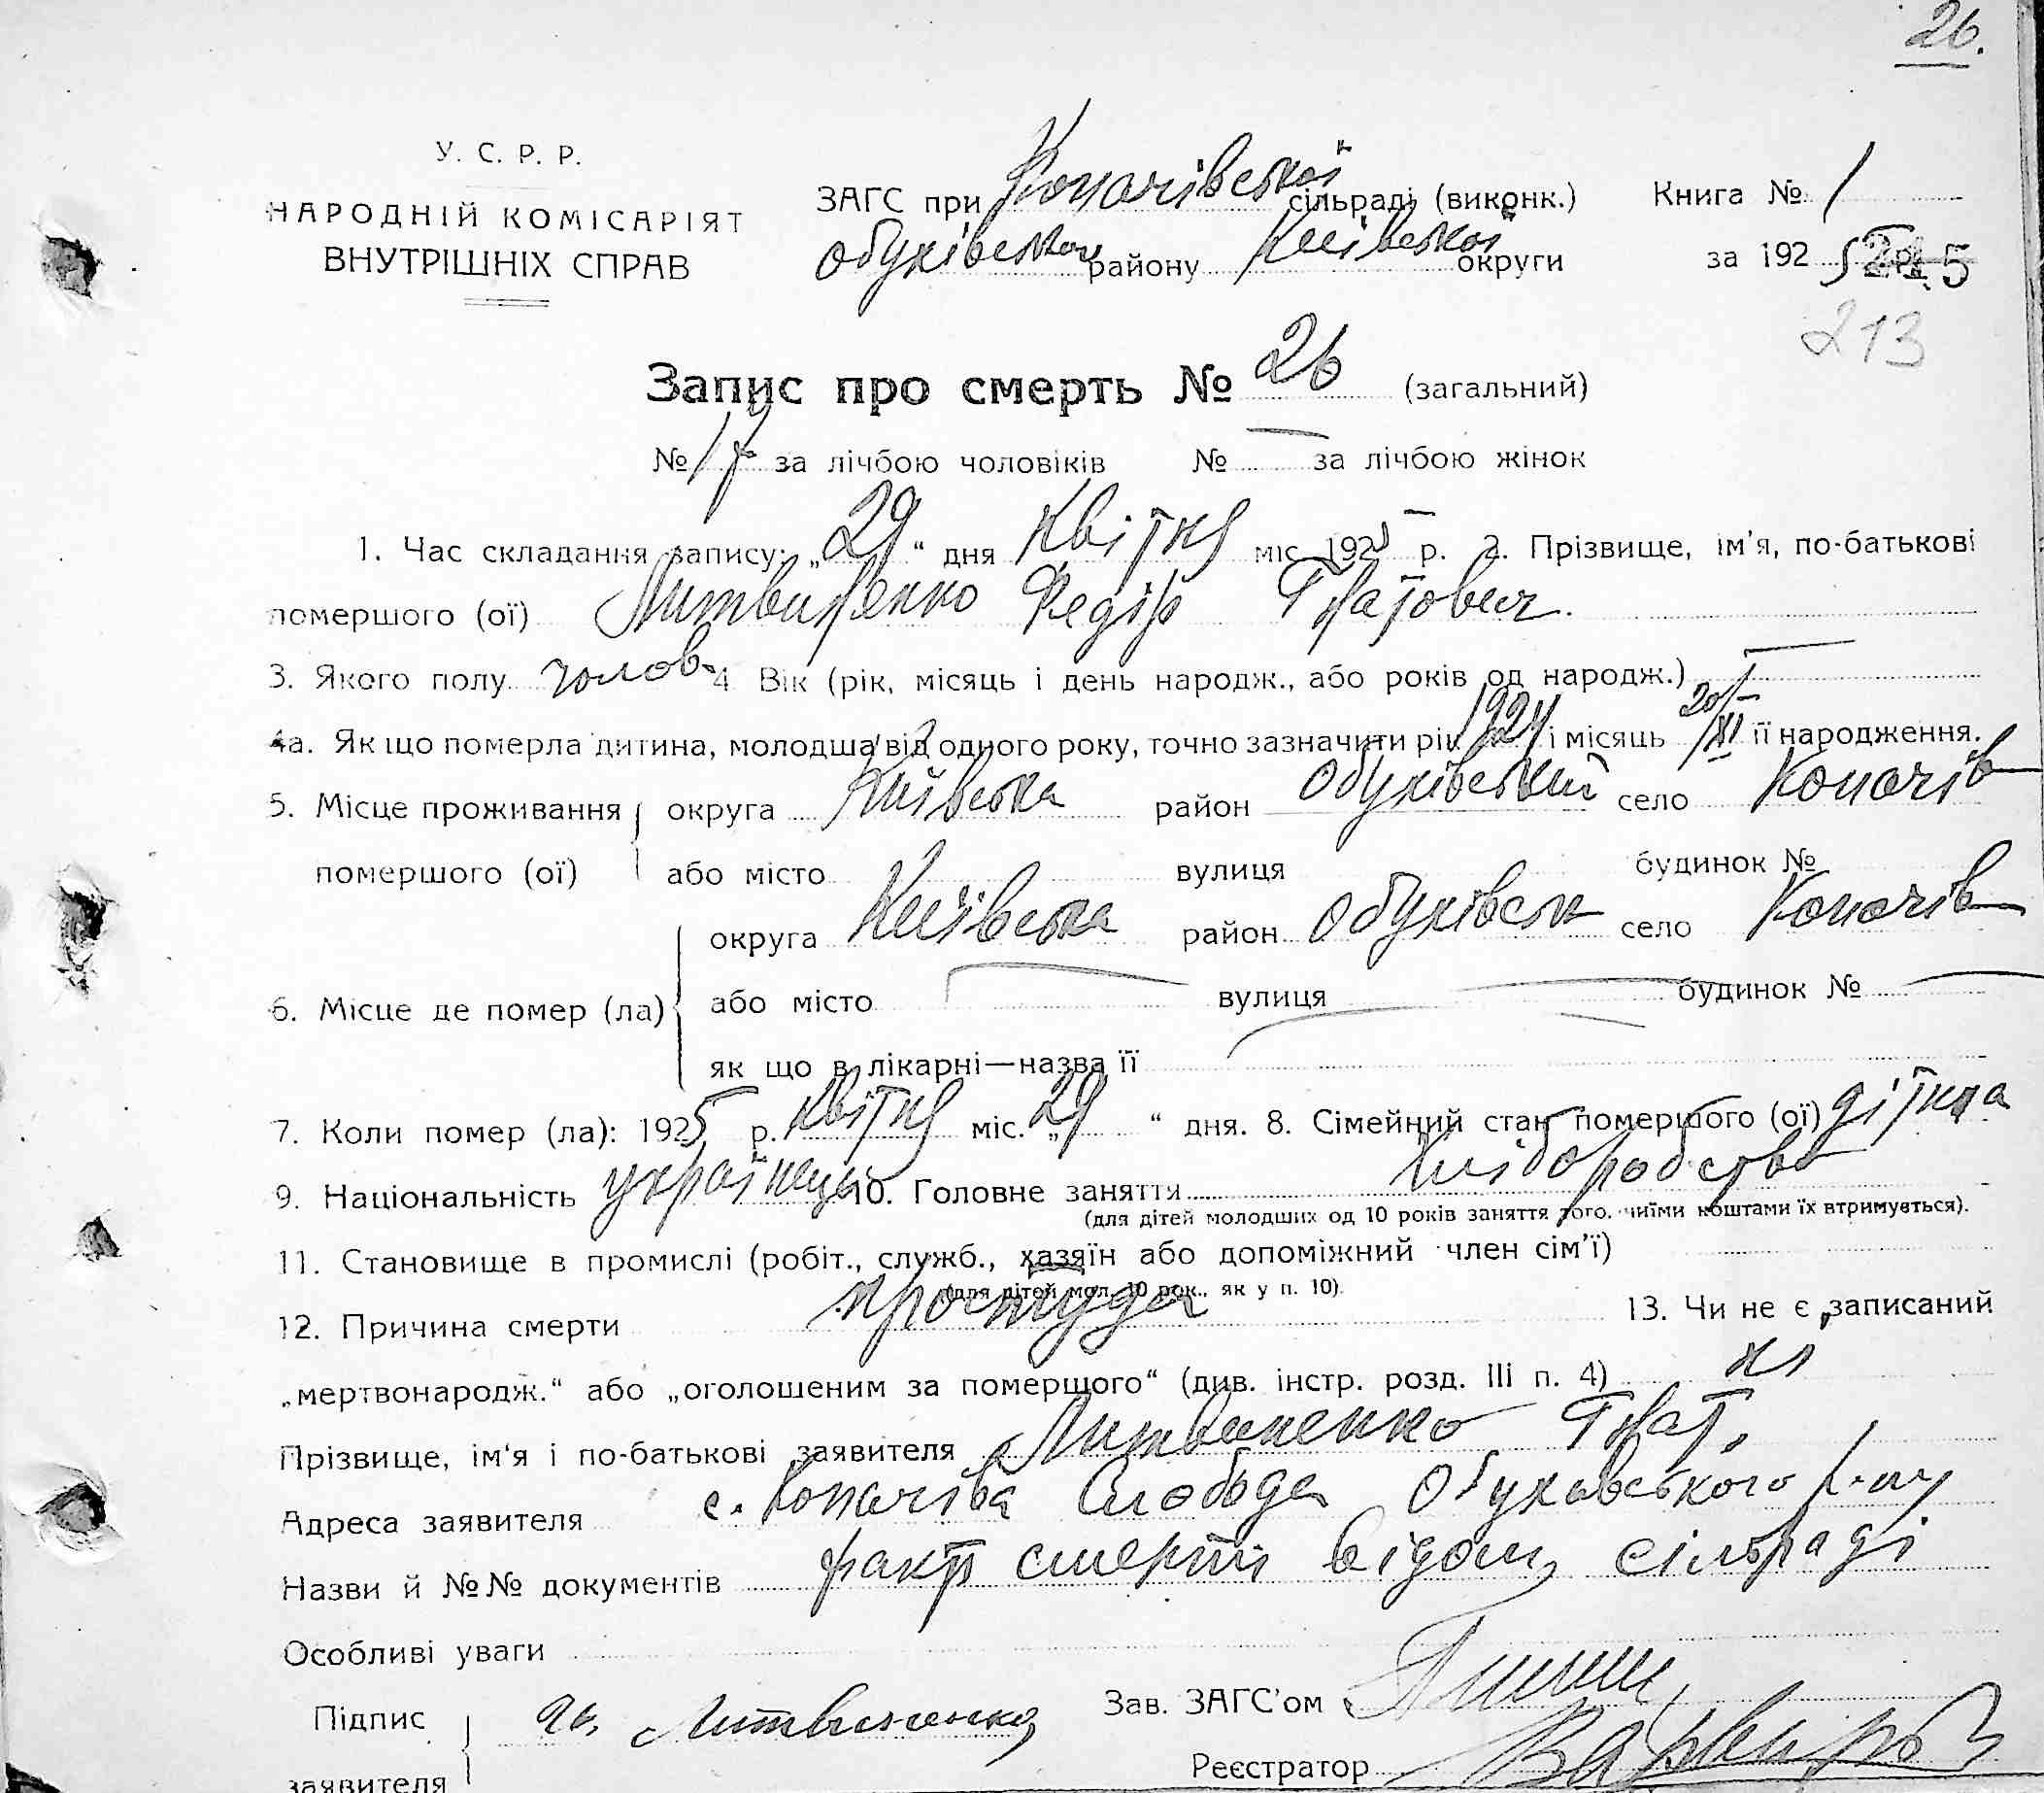 26.
У. С. Р. Р.
НАРОДНІЙ КОМІСАРІЯТ
ВНУТРІШНІХ СПРАВ
ЗАГС при Копачівської сільраді (виконк.) Книга № 1
Обухівського району Київської округи за 192 5
213
Запис про смерть № 26 (загальний)
№ 17 за лічбою чоловіків № — за лічбою жінок
1. Час складання запису: „29“ дня Квітня міс. 1925 р. 2. Прізвище, ім'я, по-батькові
помершого (ої) Литвиненко Федір Гнатович.
3. Якого полу чолов. 4. Вік (рік, місяць і день народж., або років од народж.) —
4а. Якщо померла дитина, молодша від одного року, точно зазначити рік 1924 і місяць 20/XI її народження.
5. Місце проживання округа Київська район Обухівський село Копачів
помершого (ої) або місто вулиця будинок №
округа Київська район Обухівськ село Копачів
6. Місце де помер (ла) або місто — вулиця — будинок № —
як що в лікарні—назва її —
7. Коли помер (ла): 1925 р. квітня міс. „29“ дня. 8. Сімейний стан помершого (ої) дітина
9. Національність українець 10. Головне заняття Хліборобство
(для дітей молодших од 10 років заняття того, чиїми коштами їх втримується).
11. Становище в промислі (робіт., служб., хазяїн або допоміжний член сім'ї)
(для дітей мол. 10 рок., як у п. 10).
12. Причина смерти простуда 13. Чи не є записаний
„мертвонародж.“ або „оголошеним за померщого“ (див. інстр. розд. III п. 4) ні
Прізвище, ім'я і по-батькові заявителя Литвиненко Гнат.
Адреса заявителя с. Копачіва Слобода Обухавського р-ну
Назви й №№ документів факт смерти відом. сільраді
Особливі уваги
Підпис Литвиненко Зав. ЗАГС'ом
заявителя Реєстратор